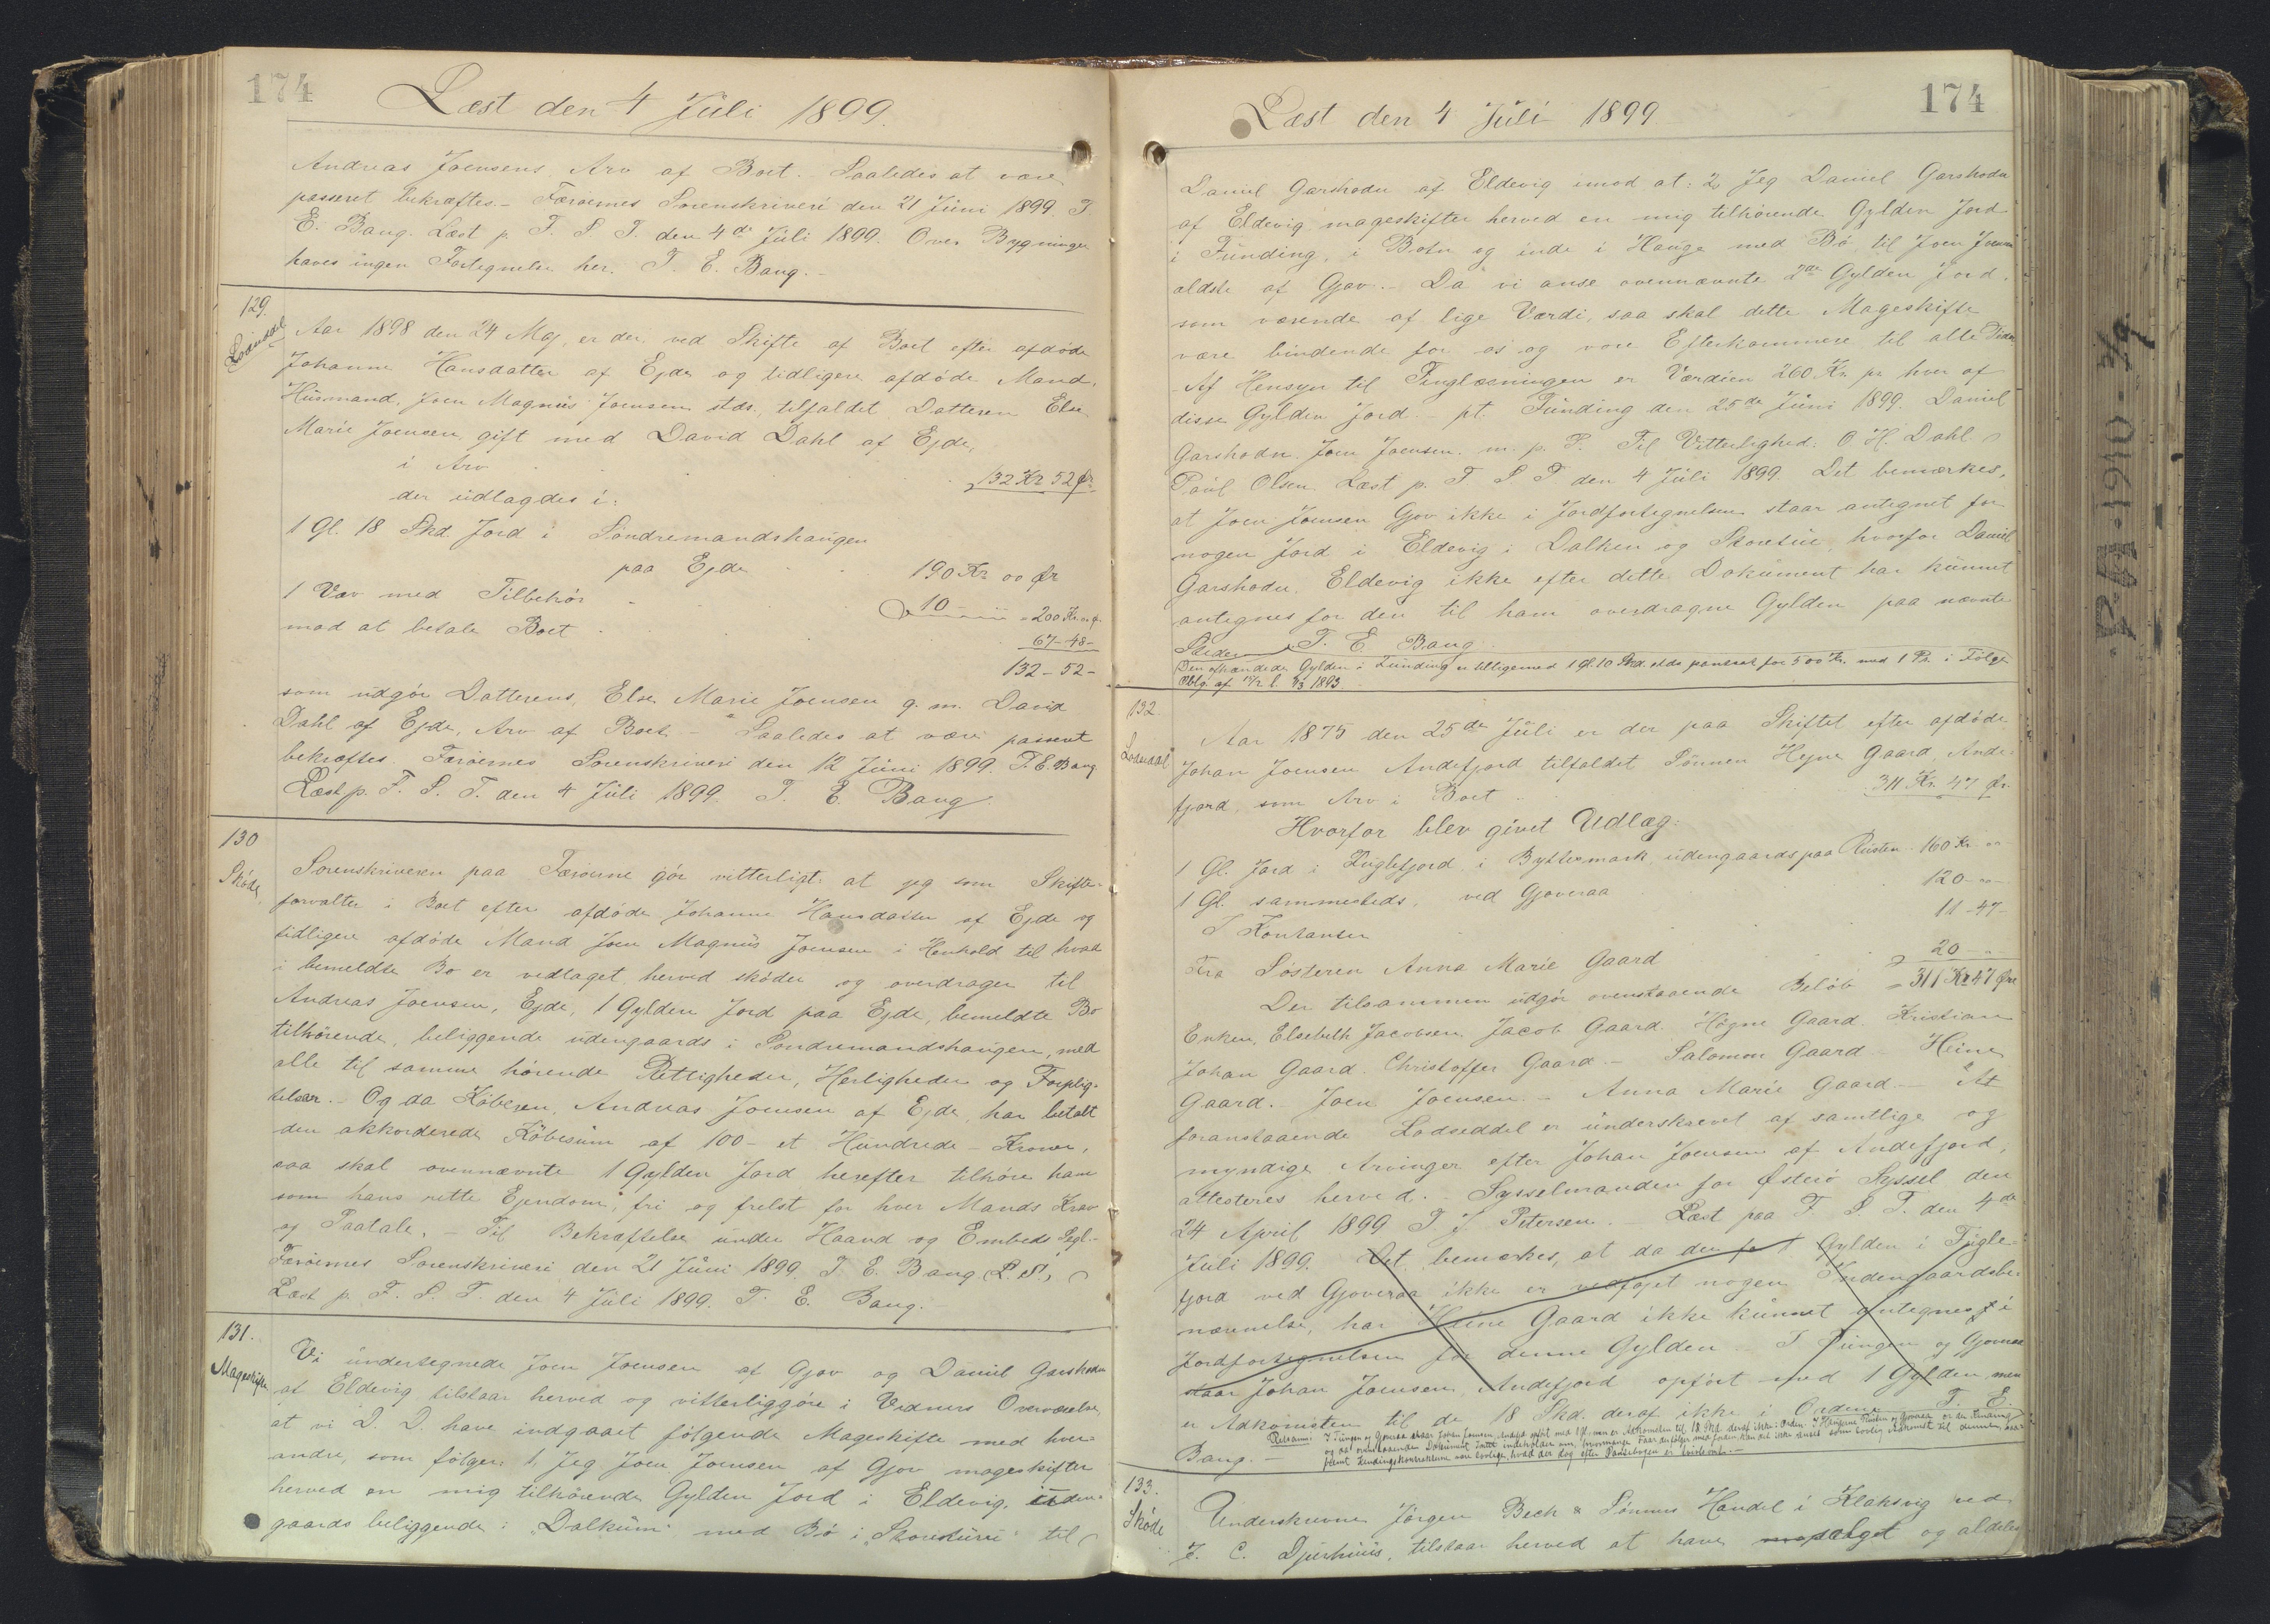 174
Læst den 4 Juli 1899.
Andreas Joensens Arv af Boet. Saaledes at være
passeret bekræftes. - Færøernes Sorenskriveri den 21 Juni 1899. T.
E. Bang. Læst p. F. S. T. den 4de Juli 1899. Over Bygninger
haves ingen Fortegnelse her. T. E. Bang. -
129.
Lodseddel
Aar 1898 den 24 Maj, er der ved Skifte af Boet efter afdøde
Johanne Hansdatter af Ejde og tidligere afdøde Mand,
Husmand, Joen Magnus Joensen stds., tilfaldet Datteren Else
Marie Joensen, gift med David Dahl af Ejde,
i Arv . . . 132 Kr 52 Ør
der udlagdes i:
1 Gl. 18 Skd. Jord i Søndremandshaugen
paa Ejde . . 190 Kr 00 Ør
1 Væv med Tilbehør . . . 10 - " - = 200 Kr. 00 Ø.
mod at betale Boet . . . 67 - 48 -
132 - 52 -
som udgør Datterens, Else Marie Joensen g. m. David
Dahl af Ejde, Arv af Boet. - Saaledes at være passeret
bekræftes. Færøernes Sorenskriveri den 12 Juni 1899. T. E. Bang
Læst p. F. S. T. den 4 Juli 1899. T. E. Bang
130
Skøde
Sorenskriveren paa Færøerne gør vitterligt: at jeg som Skifte-
forvalter i Boet efter afdøde Johanne Hansdatter af Ejde og
tidligere afdøde Mand Joen Magnus Joensen i Henhold til hvad
i bemeldte Bo er vedtaget, herved skøder og overdrager til
Andreas Joensen, Ejde, 1 Gylden Jord paa Ejde, bemeldte Bo
tilhørende, beliggende udengaards i Søndremandshaugen, med
alle til samme hørende Rettigheder, Herligheder og Forplig-
telser. - Og da Køberen, Andreas Joensen af Ejde har betalt
den akkorderede Købesum af 100 - et Hundrede - Kroner,
saa skal ovennævnte 1 Gylden Jord herefter tilhøre ham
som hans rette Ejendom, fri og frelst for hver Mands Krav
og Paatale. - Til Bekræftelse under Haand og Embeds Segl. -
Færøernes Sorenskriveri den 21 Juni 1899. T. E. Bang (L. S.)
Læst p. F. S. T. den 4 Juli 1899. T. E. Bang. -
131.
Mageskifte
Vi undertegnede Joen Joensen af Gjov og Daniel Garshodn
af Eldevig tilstaar herved og vitterliggøre i Vidners Overværelse,
at vi D. D. have indgaaet følgende Mageskifte med hver-
andre, som følger: 1, Jeg Joen Joensen af Gjov mageskifter
herved en mig tilhørende Gylden Jord i Eldevig, uden-
gaards beliggende i „Dalkum" med Bø i „Skoresurie" til
174
Læst den 4 Juli 1899.
Daniel Garshodn af Eldevig imod at: 2, Jeg Daniel Garshodn
af Eldevig mageskifter herved en mig tilhørende Gylden Jord
i Funding, i Botn og inde i Hauge med Bø, til Joen Joensen
ældste af Gjov. - Da vi anse ovennævnte 2de Gylden Jord
som værende af lige Værdi, saa skal dette Mageskifte
være bindende for os og vore Efterkommere til alle Tider
- Af Hensyn til Tinglæsningen er Værdien 260 Kr. pr. hver af
disse Gylden Jord. - pt. Funding den 25de Juni 1899. Daniel
Garshodn. Joen Joensen. m. p. P. Til Vitterlighed: O. H. Dahl.
Paul Olsen. Læst p. F. S. T. den 4 Juli 1899. Det bemærkes,
at Joen Joensen Gjov ikke i Jordfortegnelsen staar antegnet for
nogen Jord i Eldevig i Dalken og Skoresuie, hvorfor Daniel
Garshodn, Eldevig ikke efter dette Dokument har kunnet
antegnes for den til ham overdragne Gylden paa nævnte
Steder. T. E. Bang
Gylden i Funding er tilligemed 1 Gl. 10 Skd. stds pantsat for 500 Kr. med 1 Pr. i Følge
Oblg. af 1893
132.
Lodseddel
Aar 1875 den 25de Juli er der paa Skiftet efter afdøde
Johan Joensen Andefjord tilfaldet Sønnen Hejne Gaard, Ande-
fjord, som Arv i Boet . . 311 Kr. 47 Ør.
Hvorfor blev givet Udlæg:
1 Gl. Jord i Fuglefjord i Byttermark, udengaards paa Rusten. 160 Kr. "
1 Gl. sammesteds, ved Gjoveraa . . 120 - " -
I Kontanter . . . 11 - 47 -
Fra Søsteren Anna Marie Gaard . . 20 - "
Der tilsammen udgør ovenstaaende Beløb = 311 Kr 47 Øre
Enken, Elsebeth Jacobsen. Jacob Gaard. Høgne Gaard. Kristian
Johan Gaard. Christoffer Gaard. - Salomon Gaard. - Heine
Gaard. - Joen Joensen. - Anna Marie Gaard. - At
foranstaaende Lodseddel er underskrevet af samtlige og
myndige Arvinger efter Johan Joensen af Andefjord,
attesteres herved. - Sysselmanden for Østerø Syssel den
24 April 1899. J. J. Petersen. - Læst paa F. S. T. den 4de
Juli 1899. Det bemærkes, at da den 1 Gylden i Fugle-
fjord ved Gjoveraa ikke er vedføjet nogen Indengaardsbe-
nævnelse, har Heine Gaard ikke kunnet antegnes i
Jordfortegnelsen for denne Gylden. I Tungen og Gjoveraa
staar Johan Joensen, Andefjord opført med 1 Gylden, men
er Adkomsten til de 18 Skd. deraf ikke i Ordene T. E.
Bang. -
133.
Skøde
Underskrevne Jørgen Bech & Sønners Handel i Klaksvig ved
J. C. Djurhuus, tilstaar herved at have solgt og aldeles